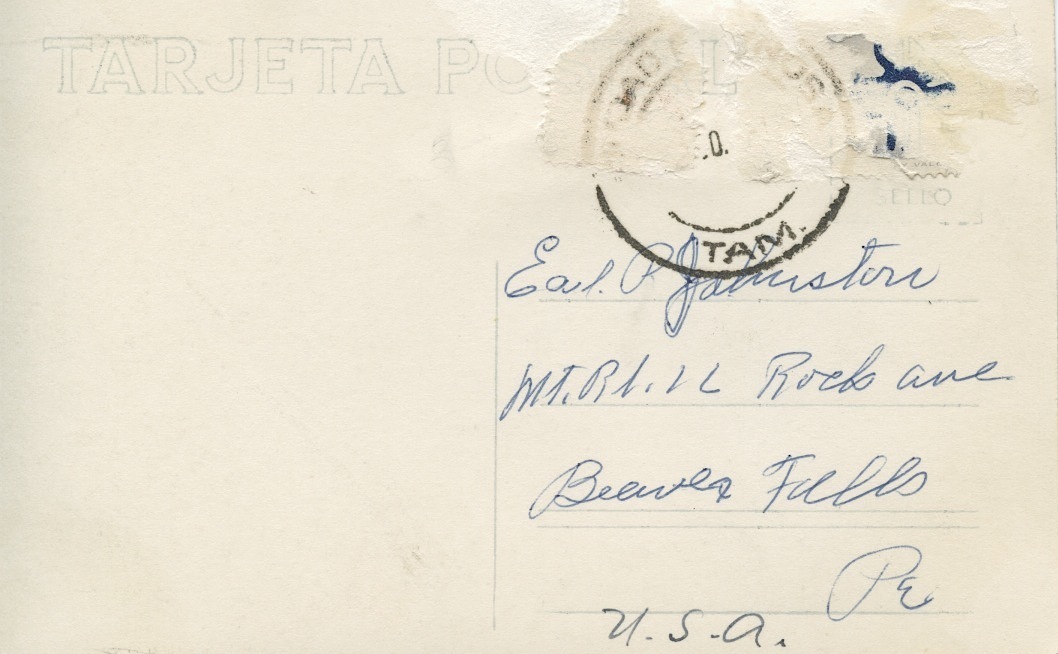 TARJETA POSTAL
.0.
VALE
SELLO
TAM.
Earl P Johnston
Mt. Rt. 12 Rock ave
Beaver Falls
Pa
U.S.A.